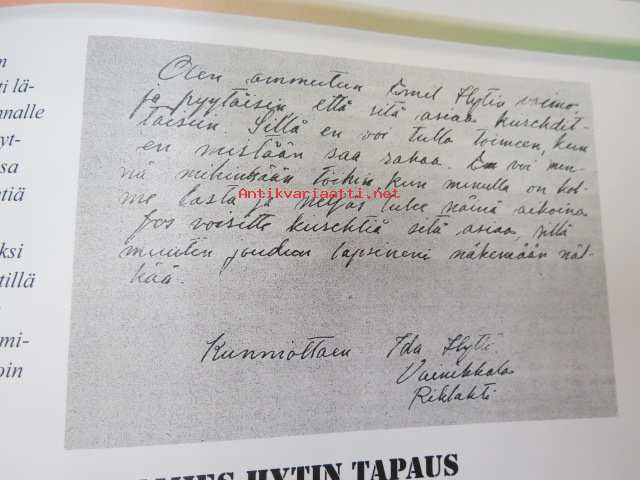 n
ti lä-
nnalle
yt-
sa
ntiä
ksi
tillä
mi-
oin
Olen ammutun Emil Hytin vaimo
ja pyytäisin että sitä asiaa kurehdit-
täisiin. Sillä en voi tulla toimeen, kun
en mistään saa rahaa. En voi men-
nä mihinkään töihin, kun minulla on kol-
me lasta ja neljäs tulee näinä aikoina
Jos voisitte kurehtiä sitä asiaa, sillä
muuten joudun lapsineni näkemään näl-
kää.
Antikvariaatti.net
Kunnioittaen Ida Hytti
Vainikkala
HYTIN TAPAUS